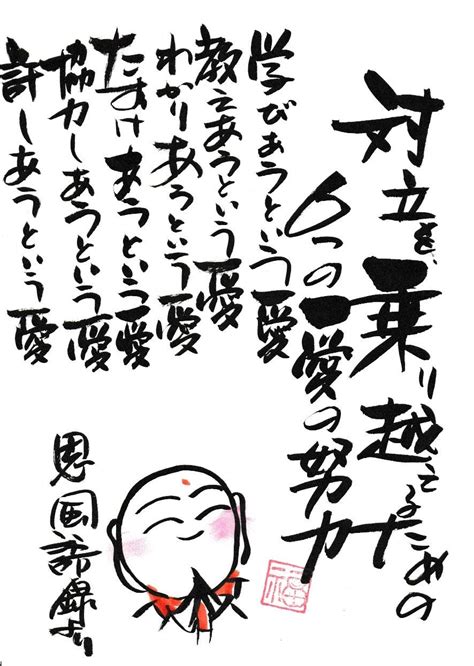 対立を、乗り越えるための
6つの愛の努力
学びあうという愛
教えあうという愛
わかりあうという愛
たすけあうという愛
協力しあうという愛
許しあうという愛
語録より
福